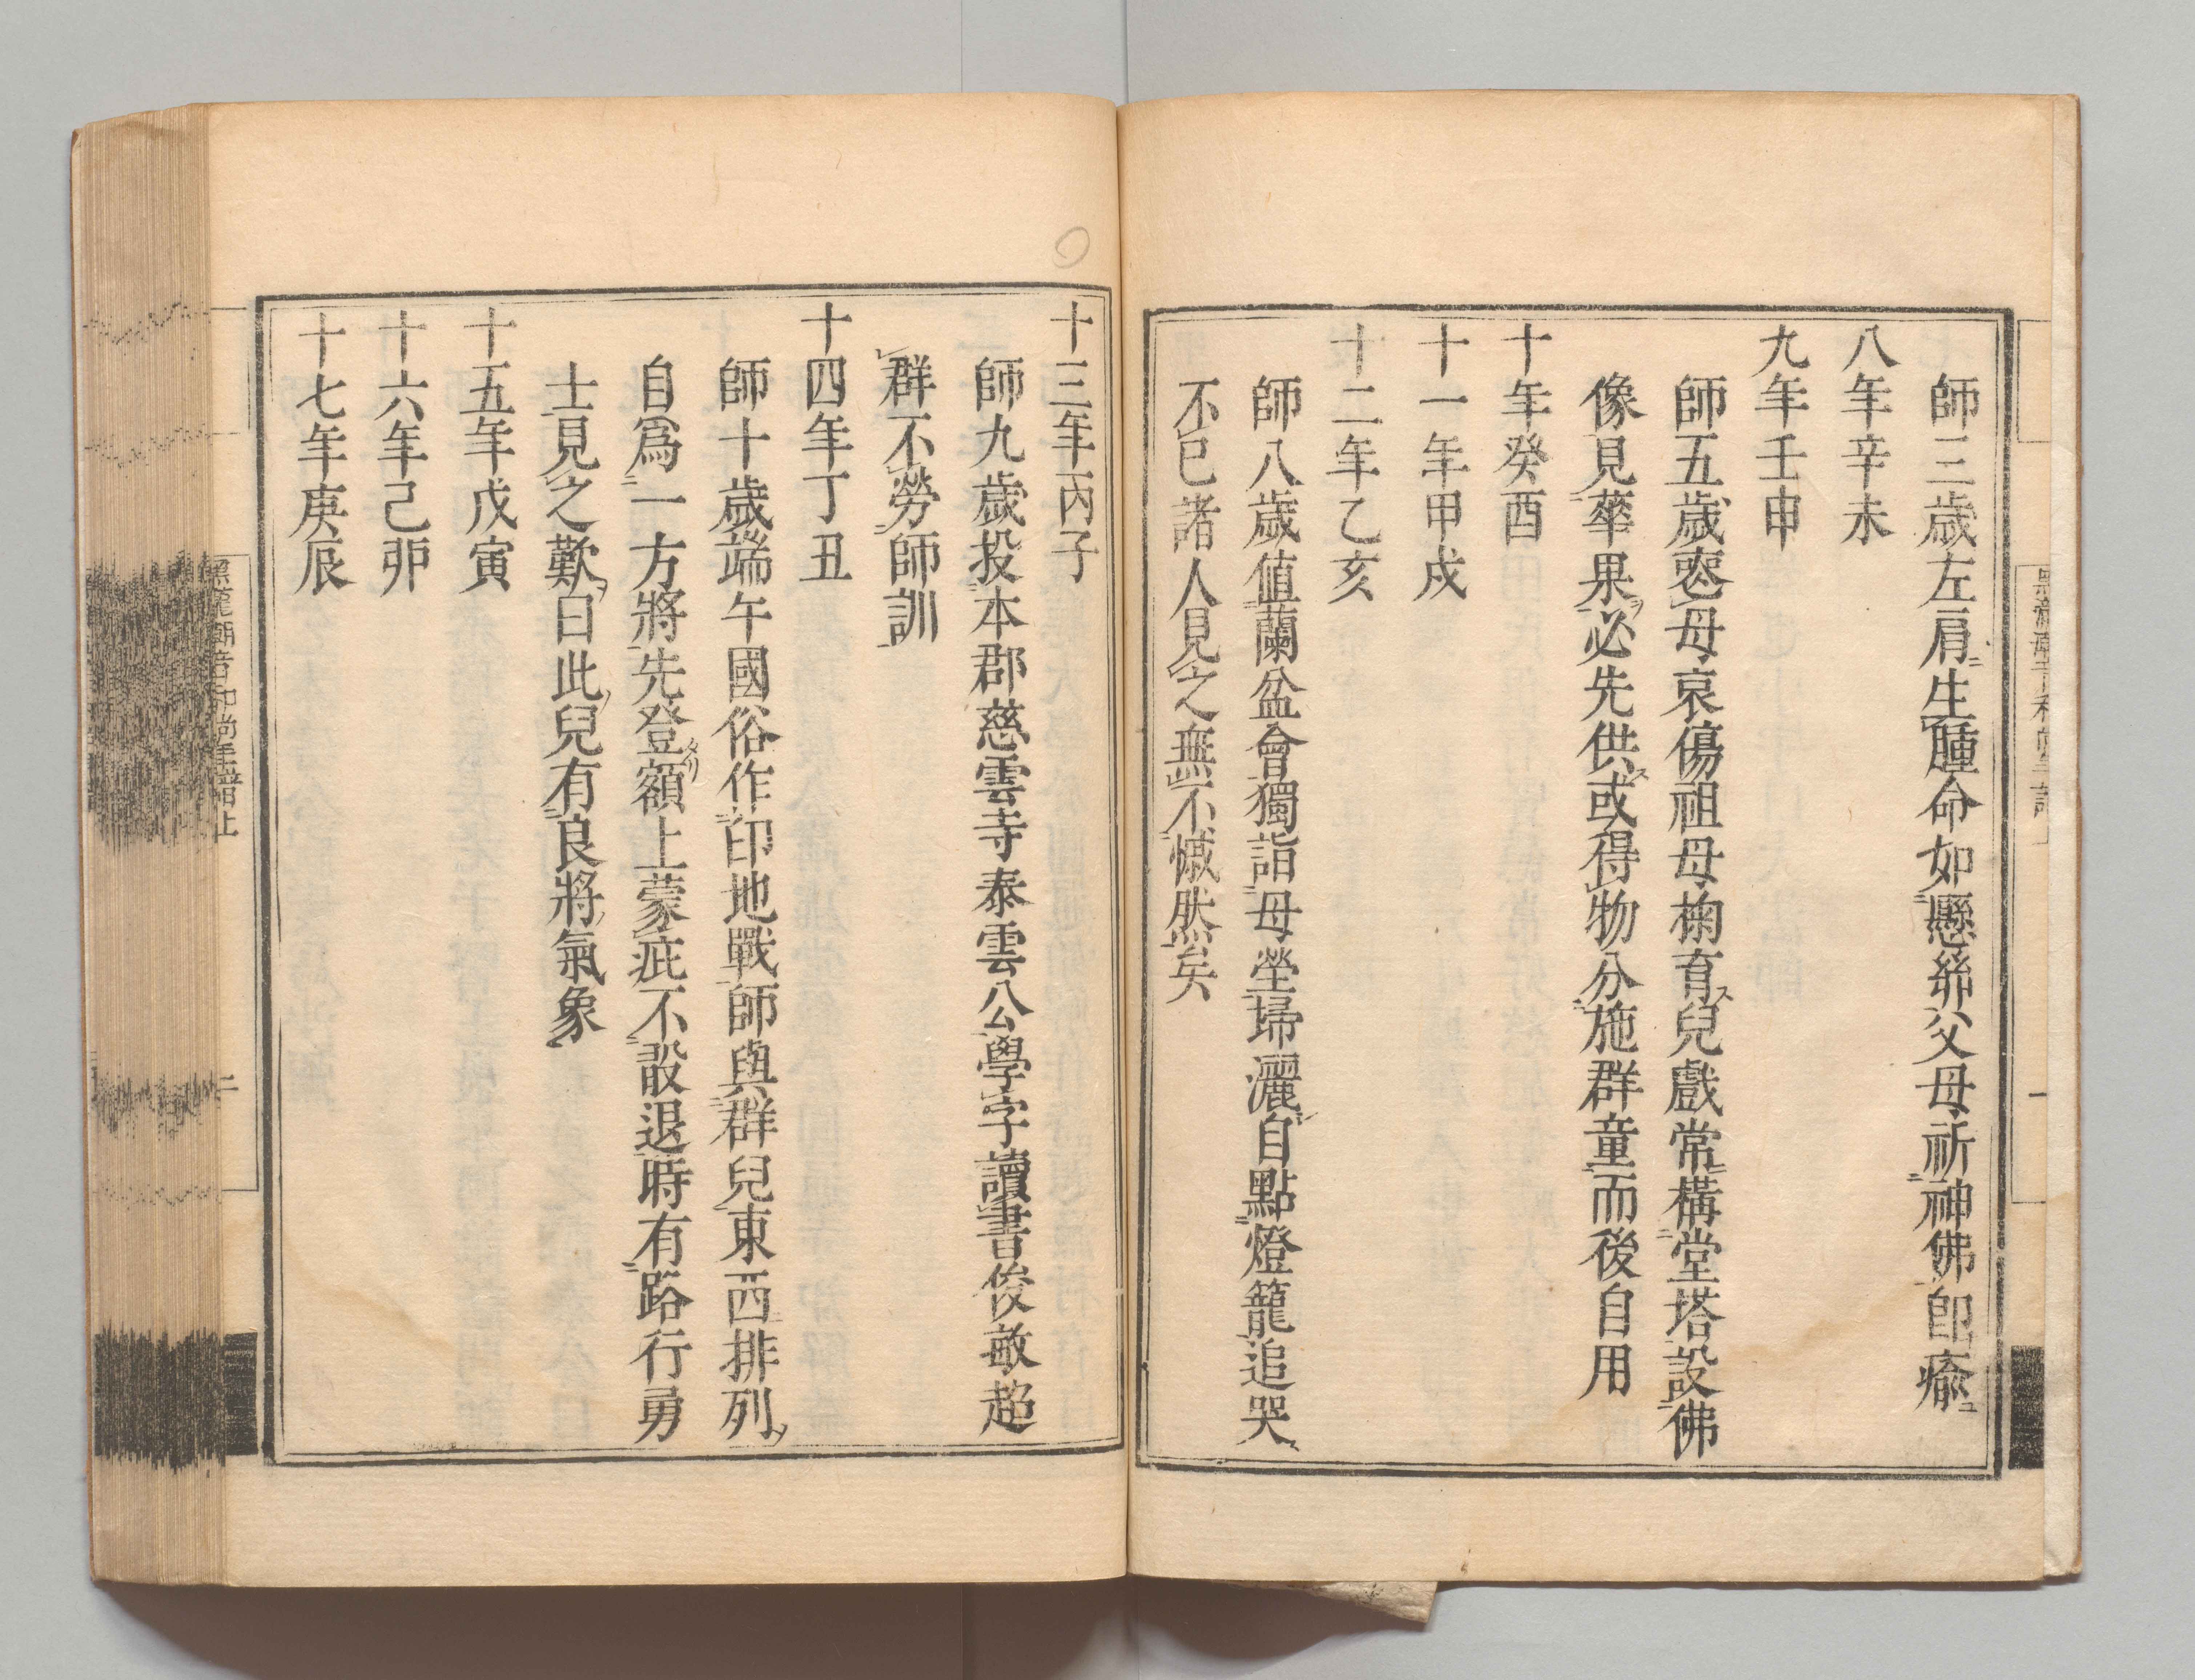 師三歳左肩生腫命如懸絲父母祈神佛卽瘉
八年辛未
九年壬申
師五歳喪母哀傷祖母掬育兒戲常搆堂塔設佛
像見華果必先供或得物分施群童而後自用
十年癸酉
十一年甲戌
十二年乙亥
師八歳値蘭盆會獨詣母塋埽灑自點燈籠追哭
不已諸人見之無不慽然矣
十三年丙子
師九歳投本郡慈雲寺泰雲公學字讀書俊敏超
群不勞師訓
十四年丁丑
師十歳端午國俗作印地戰師與群兒東西排列
自爲一方將先登額上蒙疵不設退時有路行勇
士見之歎曰此兒有良將氣象
十五年戊寅
十六年己卯
十七年庚辰
二